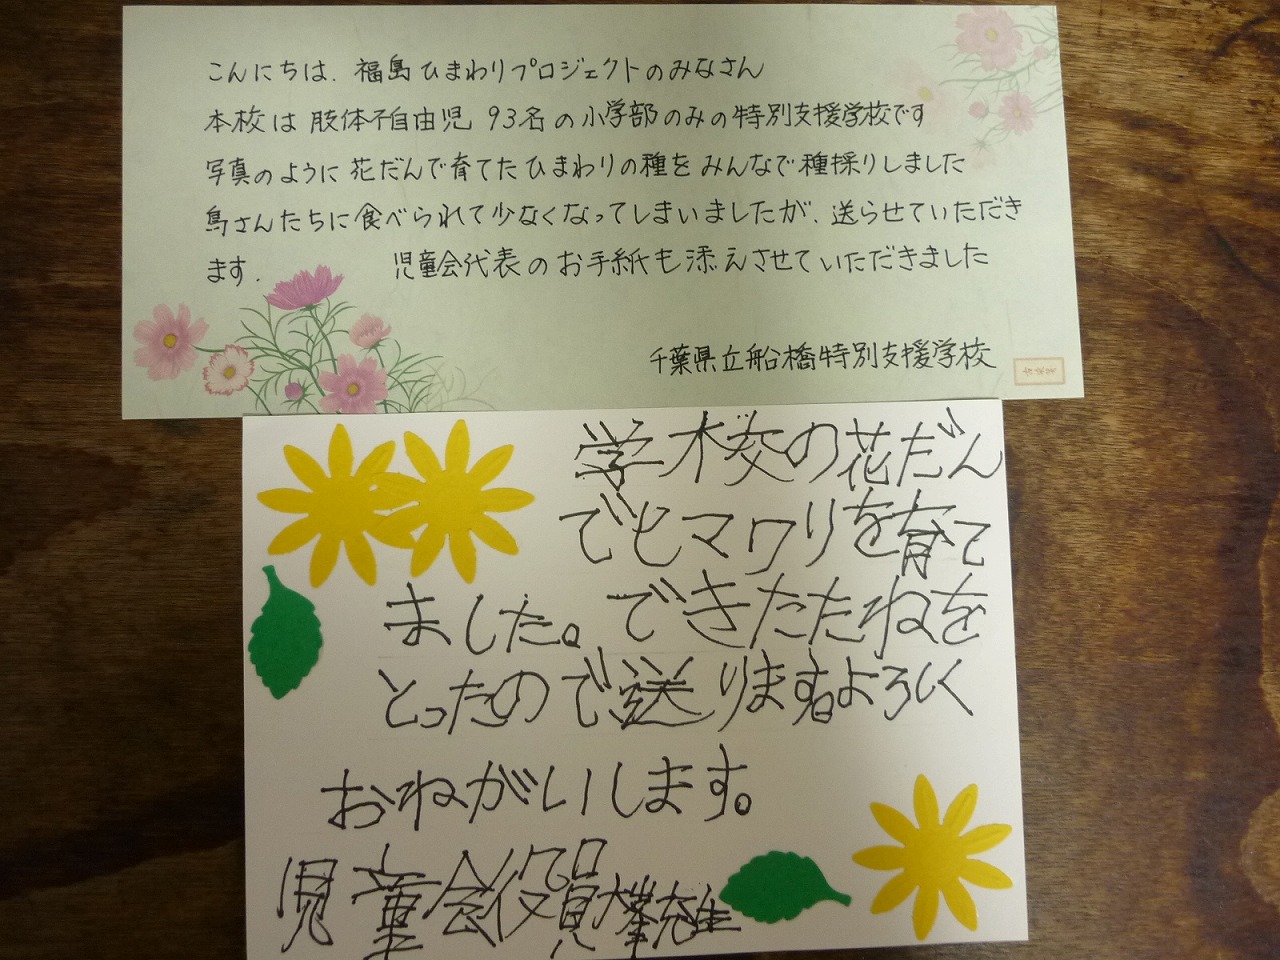 こんにちは、福島ひまわりプロジェクトのみなさん
本校は 肢体不自由児 93名の小学部のみの特別支援学校です
写真のように 花だんで育てた ひまわりの種を みんなで種採りしました
鳥さんたちに食べられて少なくなってしまいましたが、送らせていただき
ます. 児童会代表のお手紙も添えさせていただきました
千葉県立船橋特別支援学校
学校の花だん
でヒマワリを育て
ました。できたたねを
とったので送りますねよろしく
おねがいします。
児童会役員